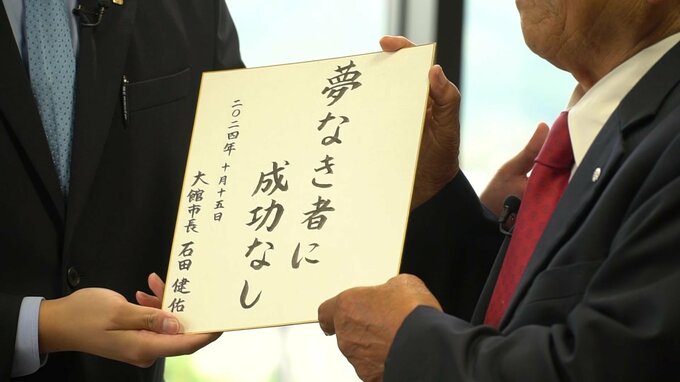 夢なき者に
成功なし
二〇二四年 十月十五日
大館市長 石田健佑